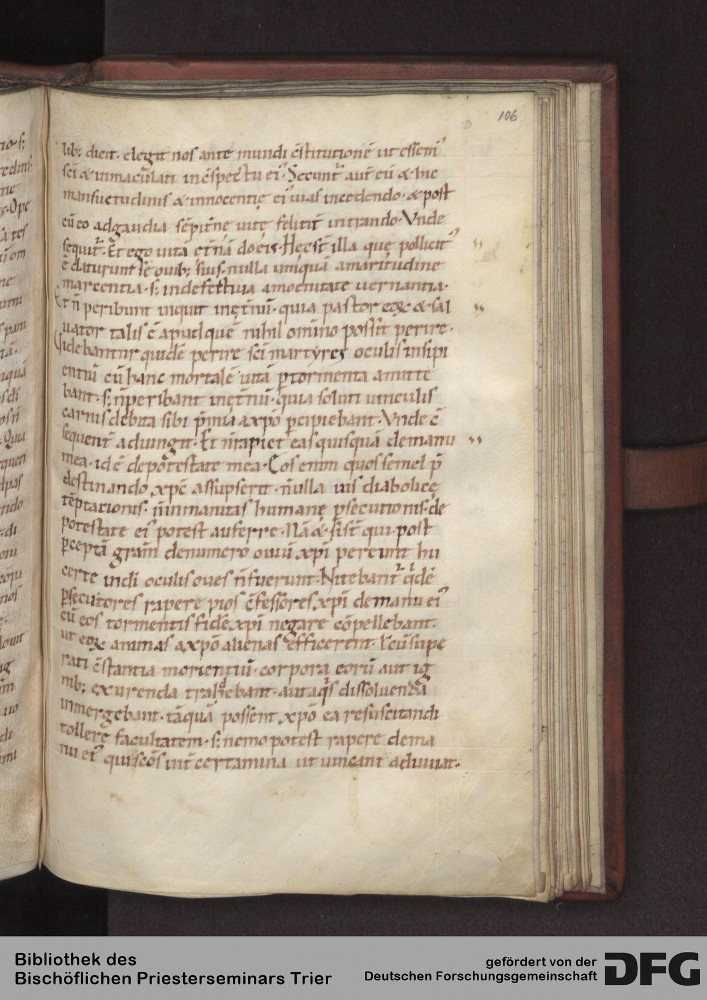 106
lib; dicit. elegit nos ante mundi cstitutionē ut essem᾿
sci & inmaculati in cspectu ei᾿. Secunt᷑ aut̄ eū & me
mansuetudinis & innocentie ei᾿ uias incedendo. & post
cū eo ad gaudia sēpit̄ne uite felicit̄ intrando. Vnde
sequit᷑. Et ego uitā et̄nā do eis. Hec ē illa que pollicit᾿
ē daturum se ouib; suis. nulla umquā amaritudine
marcentia. s; indefectiua amoenitate uernantia.
Et n̄ peribunt inquit in et̄nū. quia pastor eoꝝ & sal
uator talis ē apud quē nihil omino possit perire.
Videbantur quidē perire sci martyres oculis insipi
entiū cū hanc mortalē uitā ꝑ tormenta amitte
bant. s; n̄ peribant in et̄nū. quia soluti uinculis
carnis debita sibi p̄mia a xp̄o ꝑcipiebant. Vnde ē
sequent̄ adiungit. Et n̄ rapiet eas quisquā de manu
mea. id ē de potestate mea. Eos enim quos semel p̄
destinando xp̄c assūpserit. nulla uis diabolice
tēptationis. n̄ inmanitas humane ꝑsecutionis. de
potestate ei᾿ potest auferre. Nā & si st̄ qui post
ꝑceptā grām de numero ouiū xp̄i pereunt hii
certe in di oculis oues n̄ fuerunt. Nitebant᷑ qdē
ꝑsecutores rapere pios cfessores xp̄i de manu ei᾿
cū eos tormentis fidē xp̄i negare cōpellebant.
ut eoꝝ animas a xp̄o alienas efficerent. l cū supe
rati cstantia morientiū. corpora eorū aut ig
nib; exurenda trahebant. aut aqs dissoluenda
inmergebant. tāquā possent xp̄o ea resuscitandi
tollere facultatem. s; nemo potest rapere de ma
nu ei᾿ qui scōs int̄ certamina ut uincant adiuuat.
Bibliothek des
Bischöflichen Priesterseminars Trier
gefördert von der
Deutschen Forschungsgemeinschaft
DFG